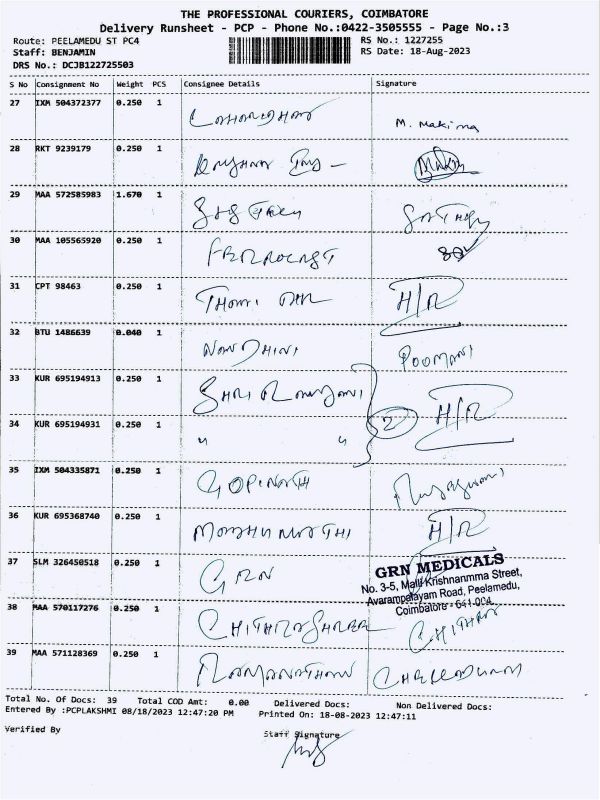 THE PROFESSIONAL COURIERS, COIMBATORE
Delivery Runsheet - PCP - Phone No.:0422-3505555 - Page No.:3
Route: PEELAMEDU ST PC4 RS No.: 1227255
Staff: BENJAMIN RS Date: 18-Aug-2023
DRS No.: DCJB122725503
S No Consignment No Weight PCS Consignee Details Signature
27 IXM 504372377 0.250 1 M. Makima
28 RKT 9239179 0.250 1
29 MAA 572585983 1.670 1
30 MAA 105565920 0.250 1
31 CPT 98463 0.250 1 H/R
32 BTU 1486639 0.040 1 NANDHINI POOMANI
33 KUR 695194913 0.250 1 SHRI RANJANI
34 KUR 695194931 0.250 1 " " 2 H/R
35 IXM 504335871 0.250 1 GOPINATH
36 KUR 695368740 0.250 1 H/R
37 SLM 326450518 0.250 1 GRN
GRN MEDICALS
No. 3-5, Malli Krishnanmma Street,
Avarampalayam Road, Peelamedu,
Coimbatore - 641 004
38 MAA 570117276 0.250 1 CHITHRA
39 MAA 571128369 0.250 1 RAMANATHAN
Total No. Of Docs: 39 Total COD Amt: 0.00 Delivered Docs: Non Delivered Docs:
Entered By :PCPLAKSHMI 08/18/2023 12:47:20 PM Printed On: 18-08-2023 12:47:11
Verified By Staff Signature